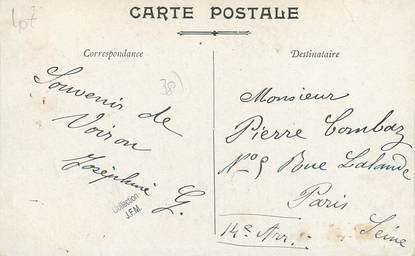 Lot
CARTE POSTALE
Correspondance
Destinataire
38)
Souvenir de
Voiron
Joséphine G.
Collection
J.F.M.
Monsieur
Pierre Combaz
N° 9 Rue Lalande
Paris
14e Arr. Seine